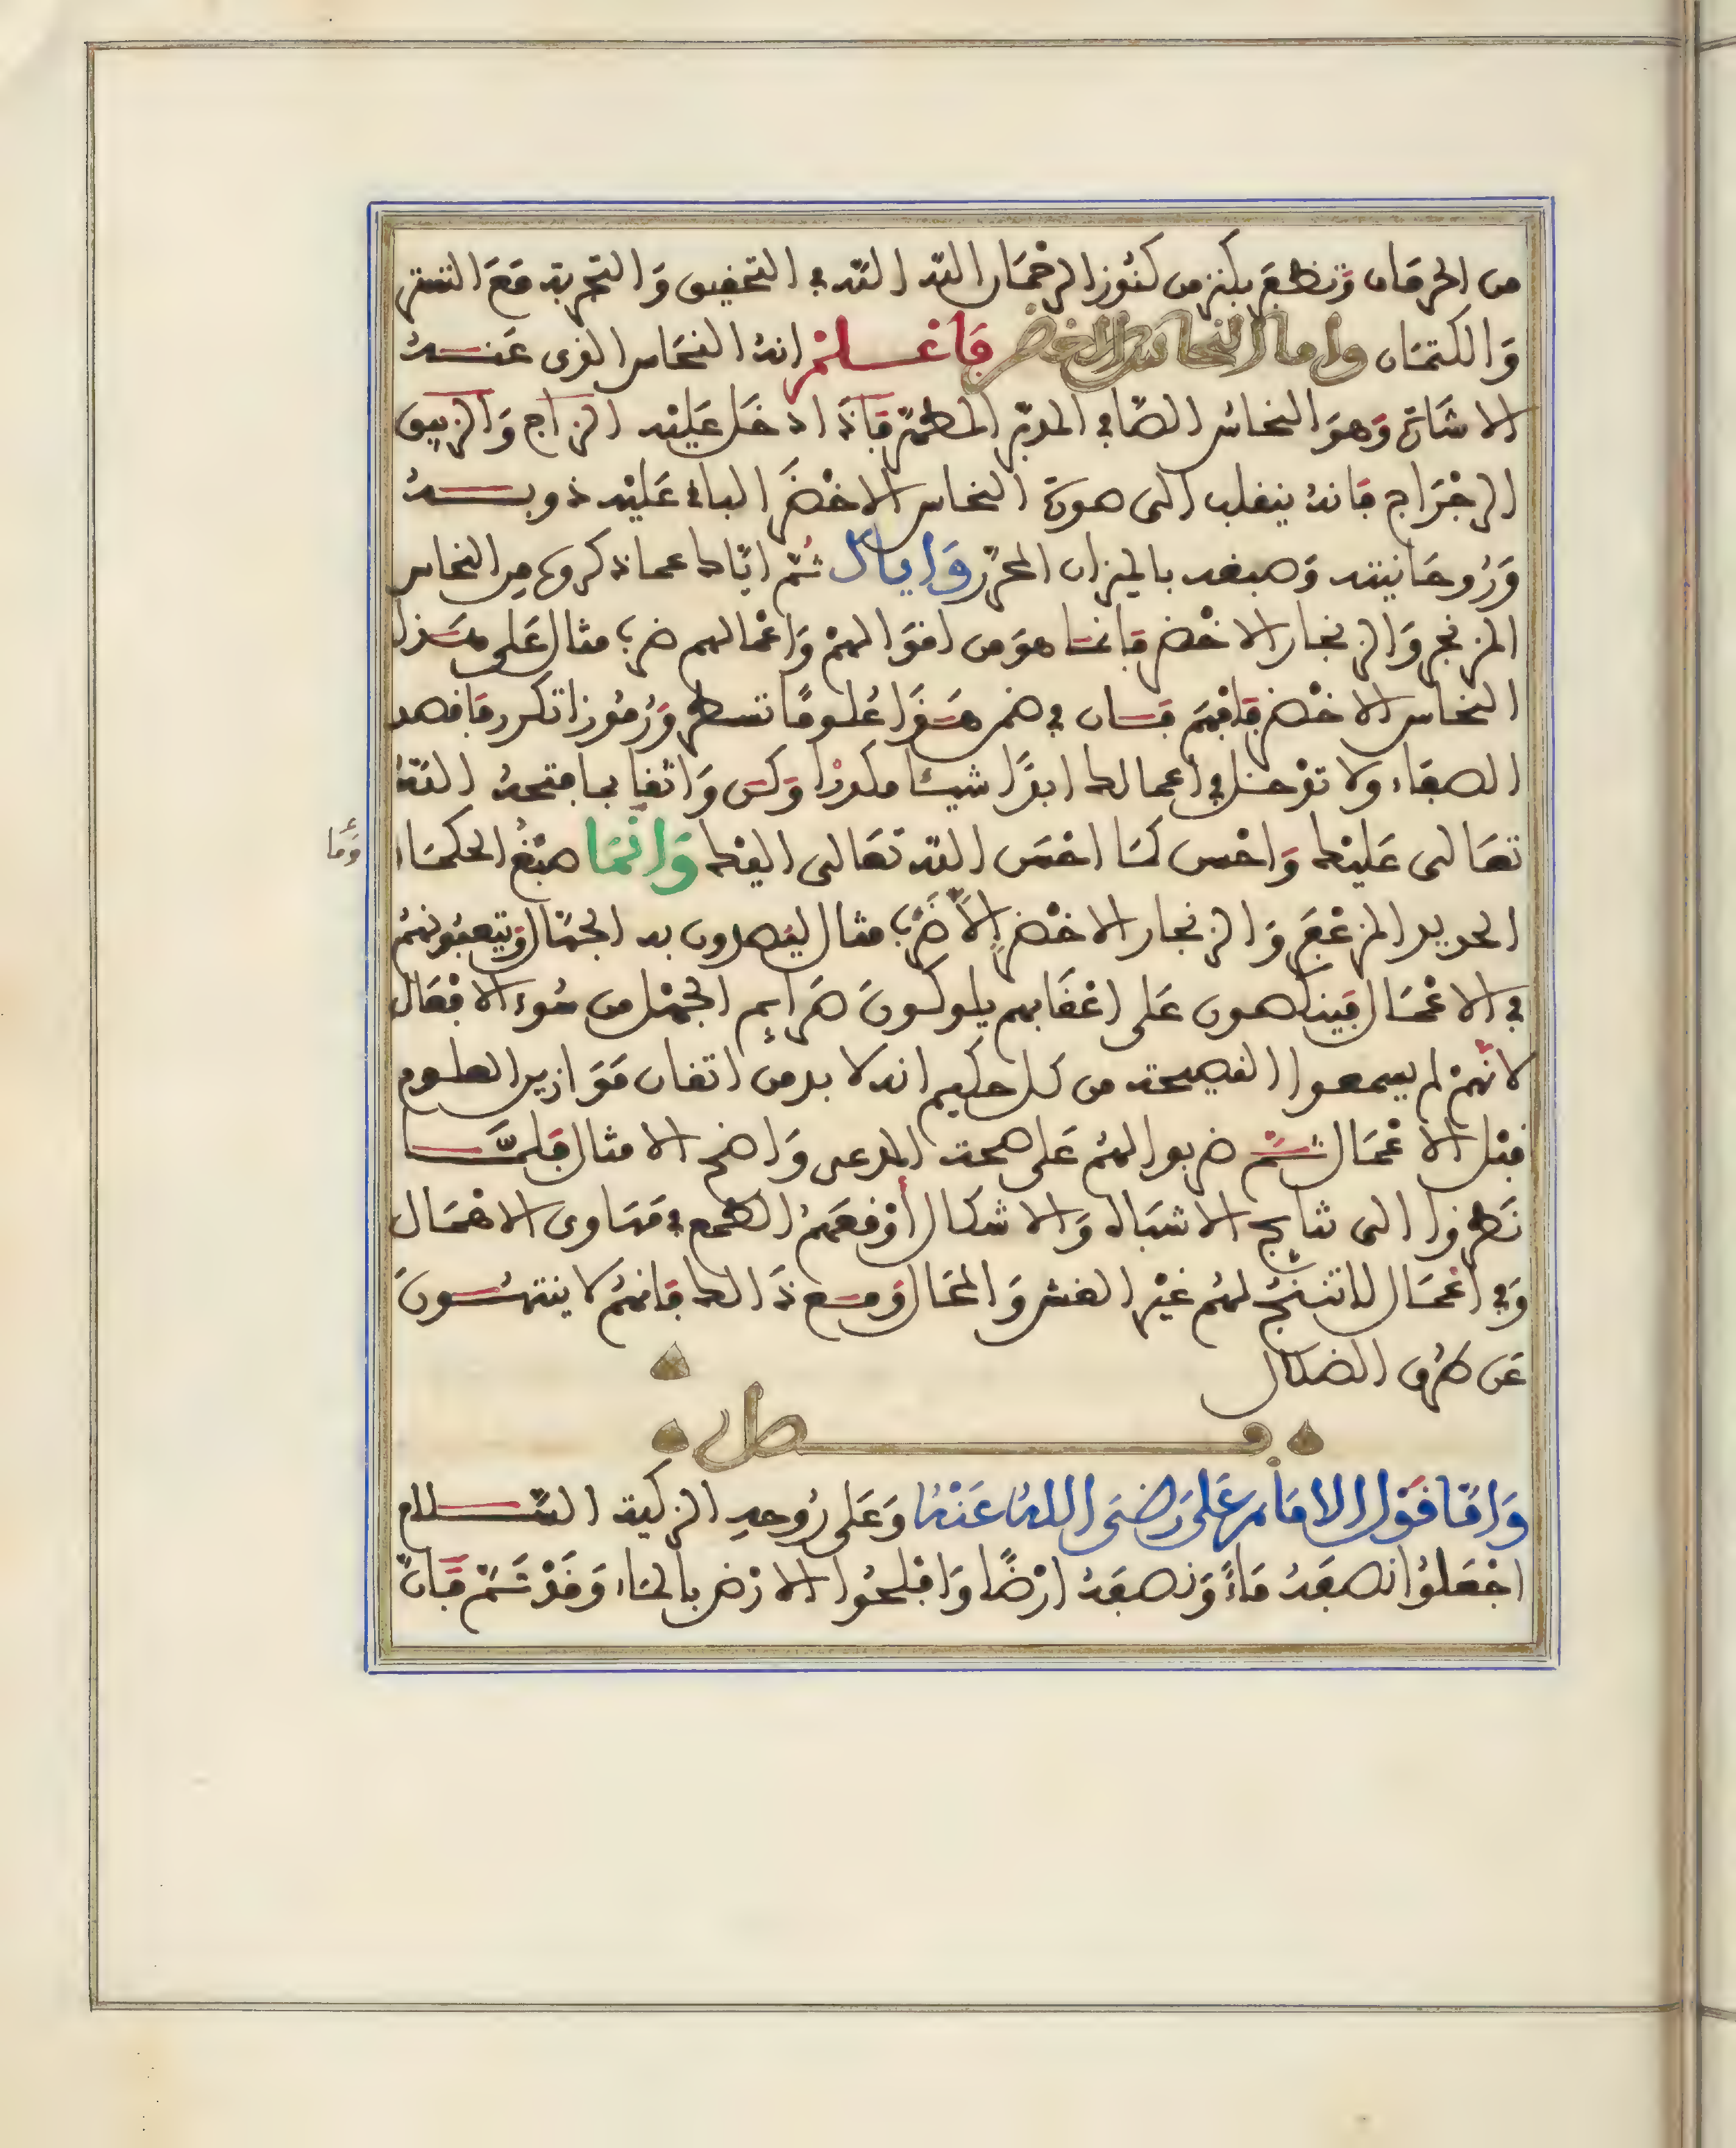 من الحرمان وتظفر بكنز من كنوز الرحمان الله الله في التحقيق والتجربة مع التستر
والكتمان واما النحاس الاخضر فاعلم انه النحاس الذي عنده
الاشارة وهو النحاس الصافي المدبر المطهر فاذا ادخل عليه الزاج والزيبق
الرجراج فانه ينقلب الى صورة النحاس الاخضر الباقي عليه ذوبه
وروحانيته وصبغه بالميزان المحرر واياك ثم اياك عما ذكروه من النحاس
المزنجر والزنجار الاخضر فانما هو من اقوالهم واعمالهم ضرب مثال على هذا
النحاس الاخضر فافهم فان في ضمن هذا علوما تسطر ورموزا تكرر فافصد
الصفاء ولا تدخل في اعمالك ابدا شيئا مكدرا وكن واثقا بما فتحه الله
تعالى عليك واحسن كما احسن الله تعالى اليك وانما صبغ الحكماء
وما
الحديد المزعفر والزنجار الاخضر الا ضرب مثال ليصدون به الجهال ويتعبونهم
في الاعمال فينكصون على اعقابهم يلوكون صرايم الجهل من سوء الافعال
لانهم لم يسمعوا النصيحة من كل حكيم انه لا بد من اتقان موازين العلوم
قبل الاعمال ثم ضربوا لهم على صحة المدعى واضح الامثال فلما
نظروا الى نتايج الاشباه والاشكال أوقعهم الطمع في مهاوى الاهمال
وفي اعمال لا تنتج لهم غير الغش والمحال ومع ذالك فانهم لا ينتهون
عن طرق الضلال
فصل
واما قول الامام على رضى الله عنه وعلى روحه الزكية السلام
اجعلوا نصفه ماء ونصفه ارضا وافلحوا الارض بالماء وقد تم فان